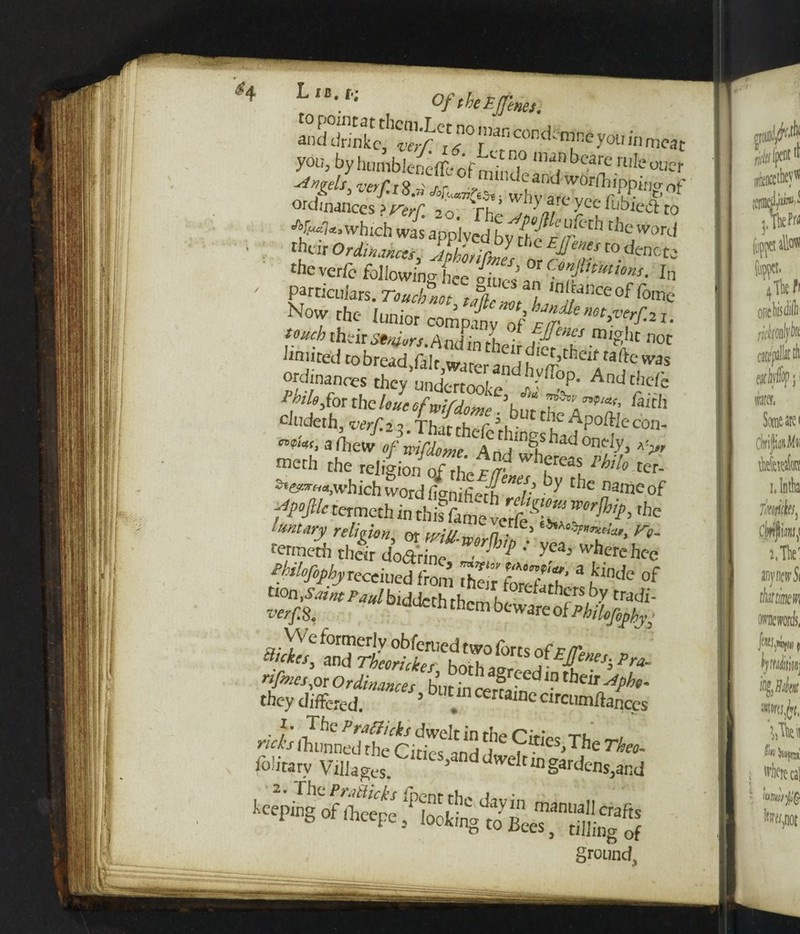 64 LIB. I. Of the Essenes.
to point at them. Let no man condemne you in meat
and drinke, vers. 16. Let no man beare rule ouer
you, by humblenesse of minde and worshipping of
Angels, vers. 18. τί δογματίζεσθε; why are yee subiect to
ordinances? Vers. 20. The Apostle useth the word
δόγματα, which was applyed by the Essenes to denote
their Ordinances, Aphorismes, or Constitutions. In
the verse following hee giues an instance of some
particulars. Touch not, taste not, handle not, vers. 21.
Now the Iunior company of Essenes might not
touch their Seniors. And in their diet, their taste was
limited to bread, salt, water and hyssop. And these
ordinances they undertooke, διὰ πόθον σοφίας, saith
Philo, for the loue of wisdome; but the Apostle con-
cludeth, vers. 23. That these things had onely, λόγον
σοφίας, a shew of wisdome. And whereas Philo ter-
meth the religion of the Essenes, by the name of
θεραπεία, which word signifieth religious worship, the
Apostle termeth in this same verse, ἐθελοθρησκείαν, Vo-
luntary religion, or will-worship: yea, where hee
termeth their doctrine, πάτριον φιλοσοφίαν, a kinde of
Philosophy receiued from their forefathers by tradi-
tion, Saint Paul biddeth them beware of Philosophy,
vers. 8.
We formerly obserued two sorts of Essenes; Pra-
ctickes, and Theorickes, both agreed in their Apho-
rismes, or Ordinances, but in certaine circumstances
they differed.
1. The Practicks dwelt in the Cities, The Theo-
ricks shunned the Cities, and dwelt in gardens, and
solitary Villages.
2. The Practicks spent the day in manuall crafts
keeping of sheepe, looking to Bees, tilling of
ground,